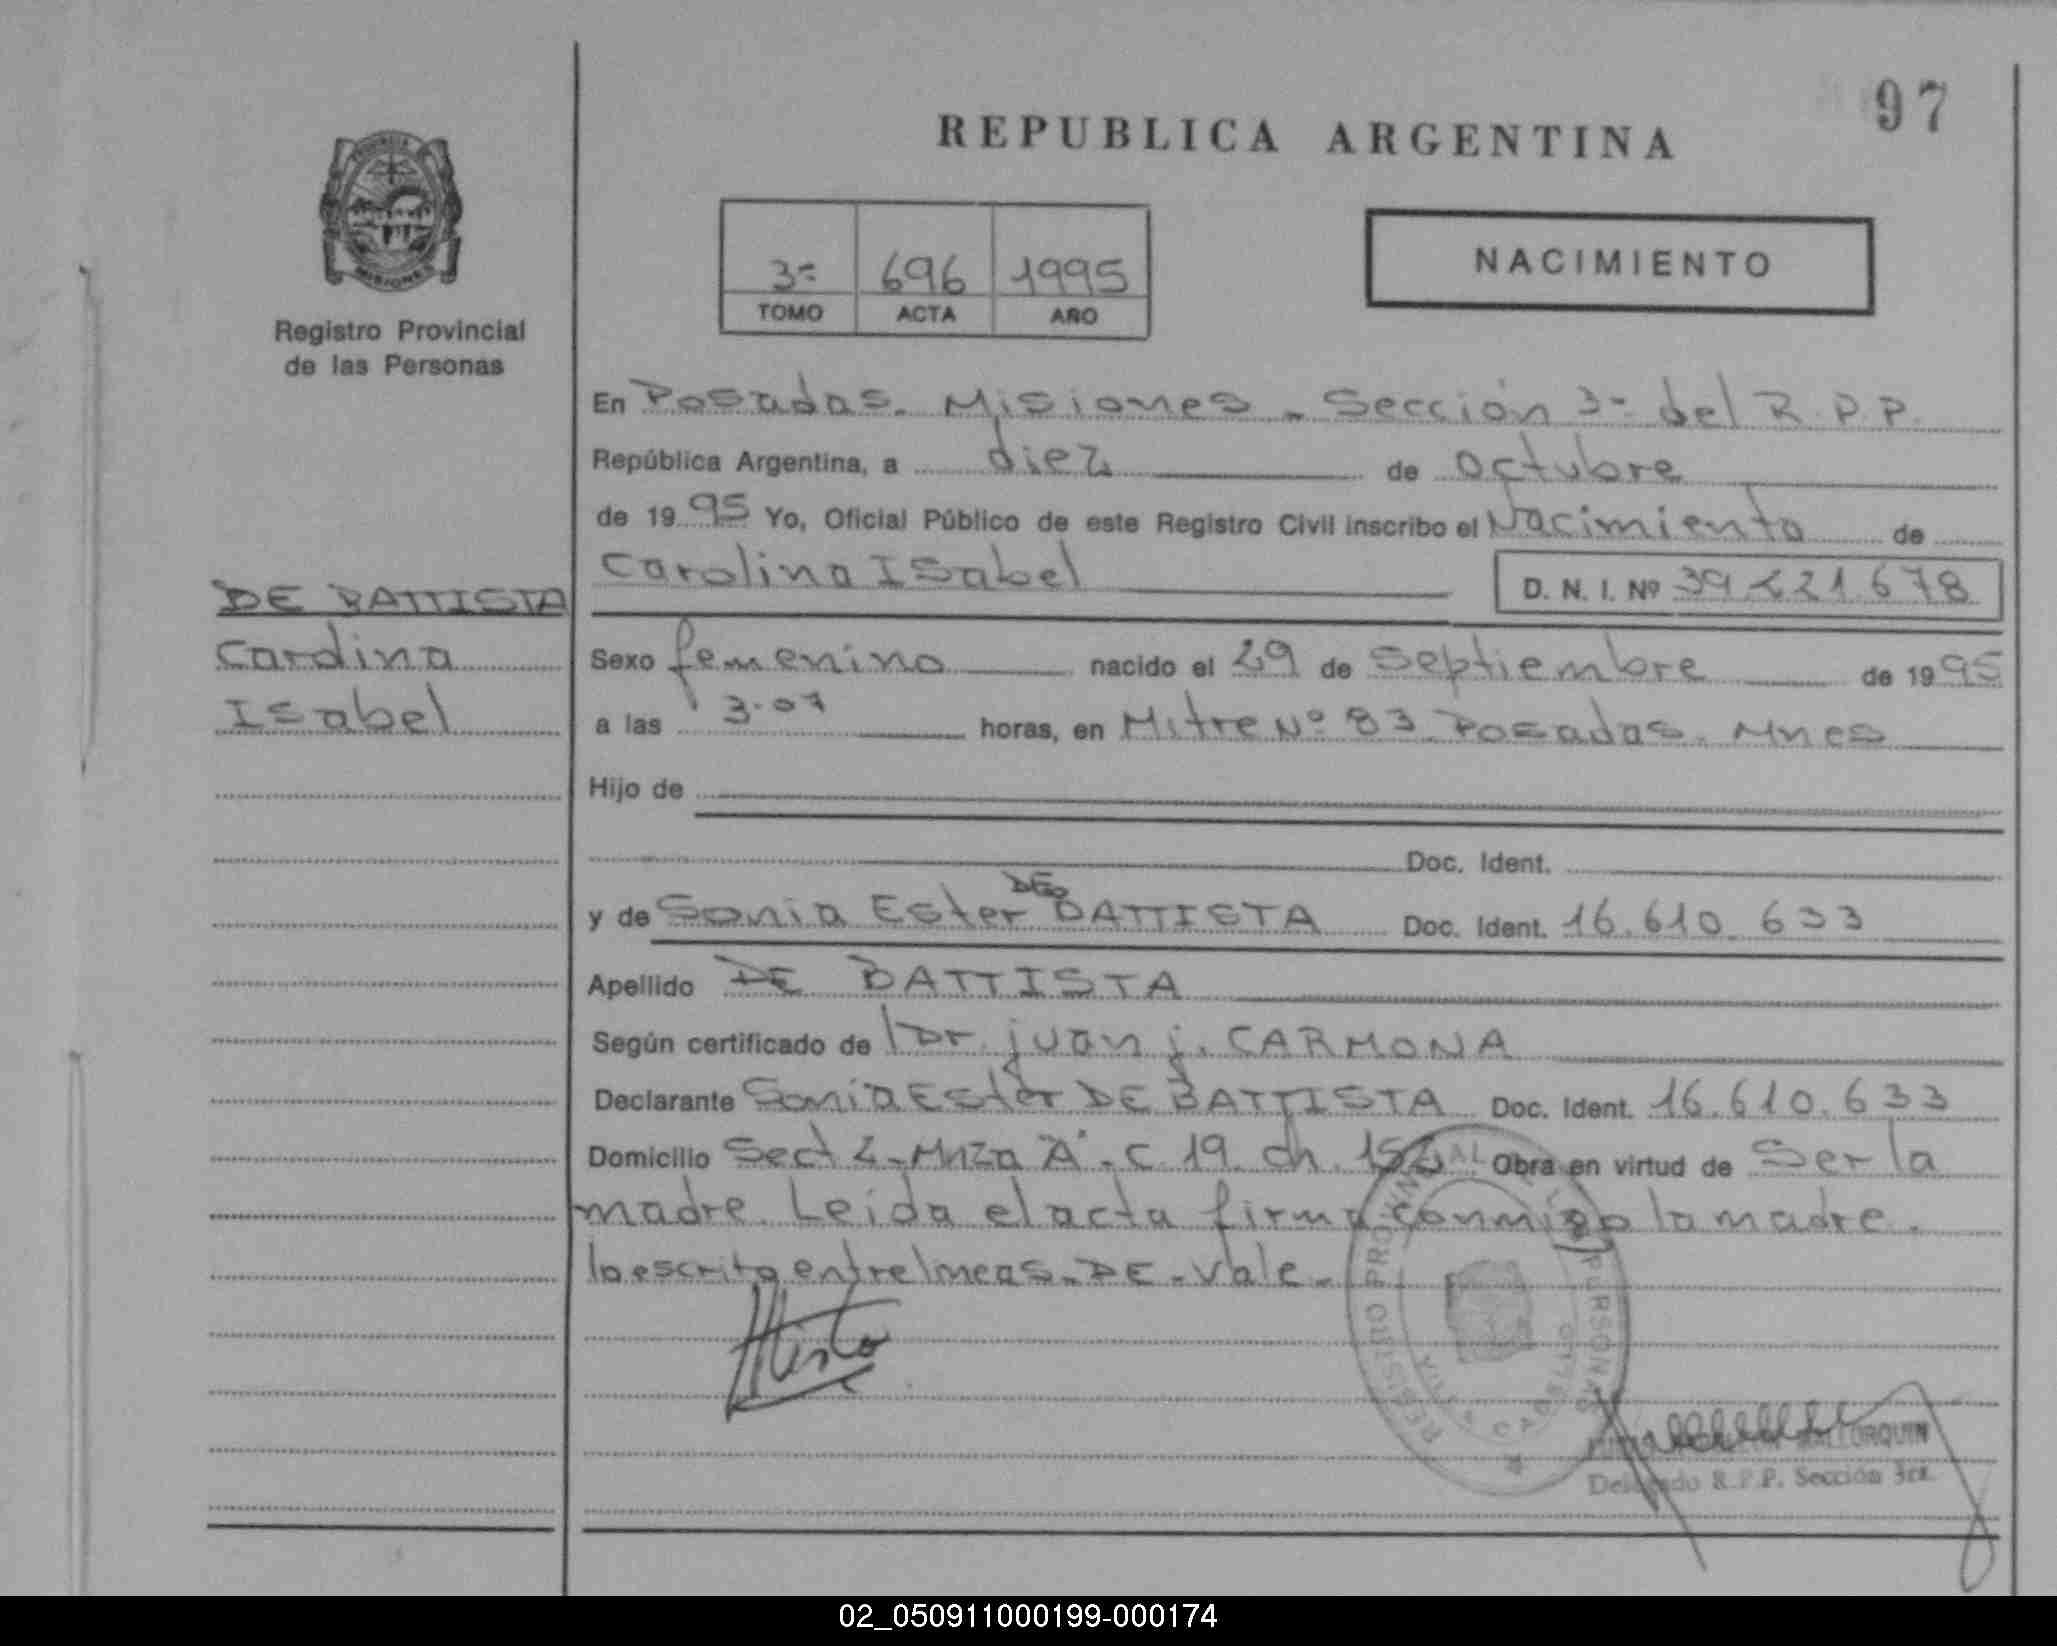 97
REPUBLICA ARGENTINA
PROVINCIA DE
MISIONES
Registro Provincial
de las Personas
3ª 696 1995
TOMO ACTA AÑO
NACIMIENTO
En Posadas. Misiones - Sección 3ª del R.P.P.
República Argentina, a diez de octubre
de 1995 Yo, Oficial Público de este Registro Civil inscribo el Nacimiento de
Carolina Isabel D. N. I. Nº 39.221.678
DE BATTISTA
Carolina
Isabel
Sexo femenino nacido el 29 de Septiembre de 1995
a las 3.07 horas, en Mitre Nº 83. Posadas. Mnes
Hijo de
Doc. Ident.
DE
y de Sonia Ester BATTISTA Doc. Ident. 16.610.633
Apellido DE BATTISTA
Según certificado de Dr. juan j. CARMONA
Declarante Sonia Ester DE BATTISTA Doc. Ident. 16.610.633
Domicilio Sect 2 - Mnza "A". C. 19. ch. 152 Obra en virtud de Ser la
madre. Leida el acta firma conmigo la madre.
lo escrito entrelineas - DE - Vale -
REGISTRO PROVINCIAL DE LAS PERSONAS
VILLA CABELLO
MALLORQUIN
Delegado R.P.P. Sección 3ra.
02_050911000199-000174